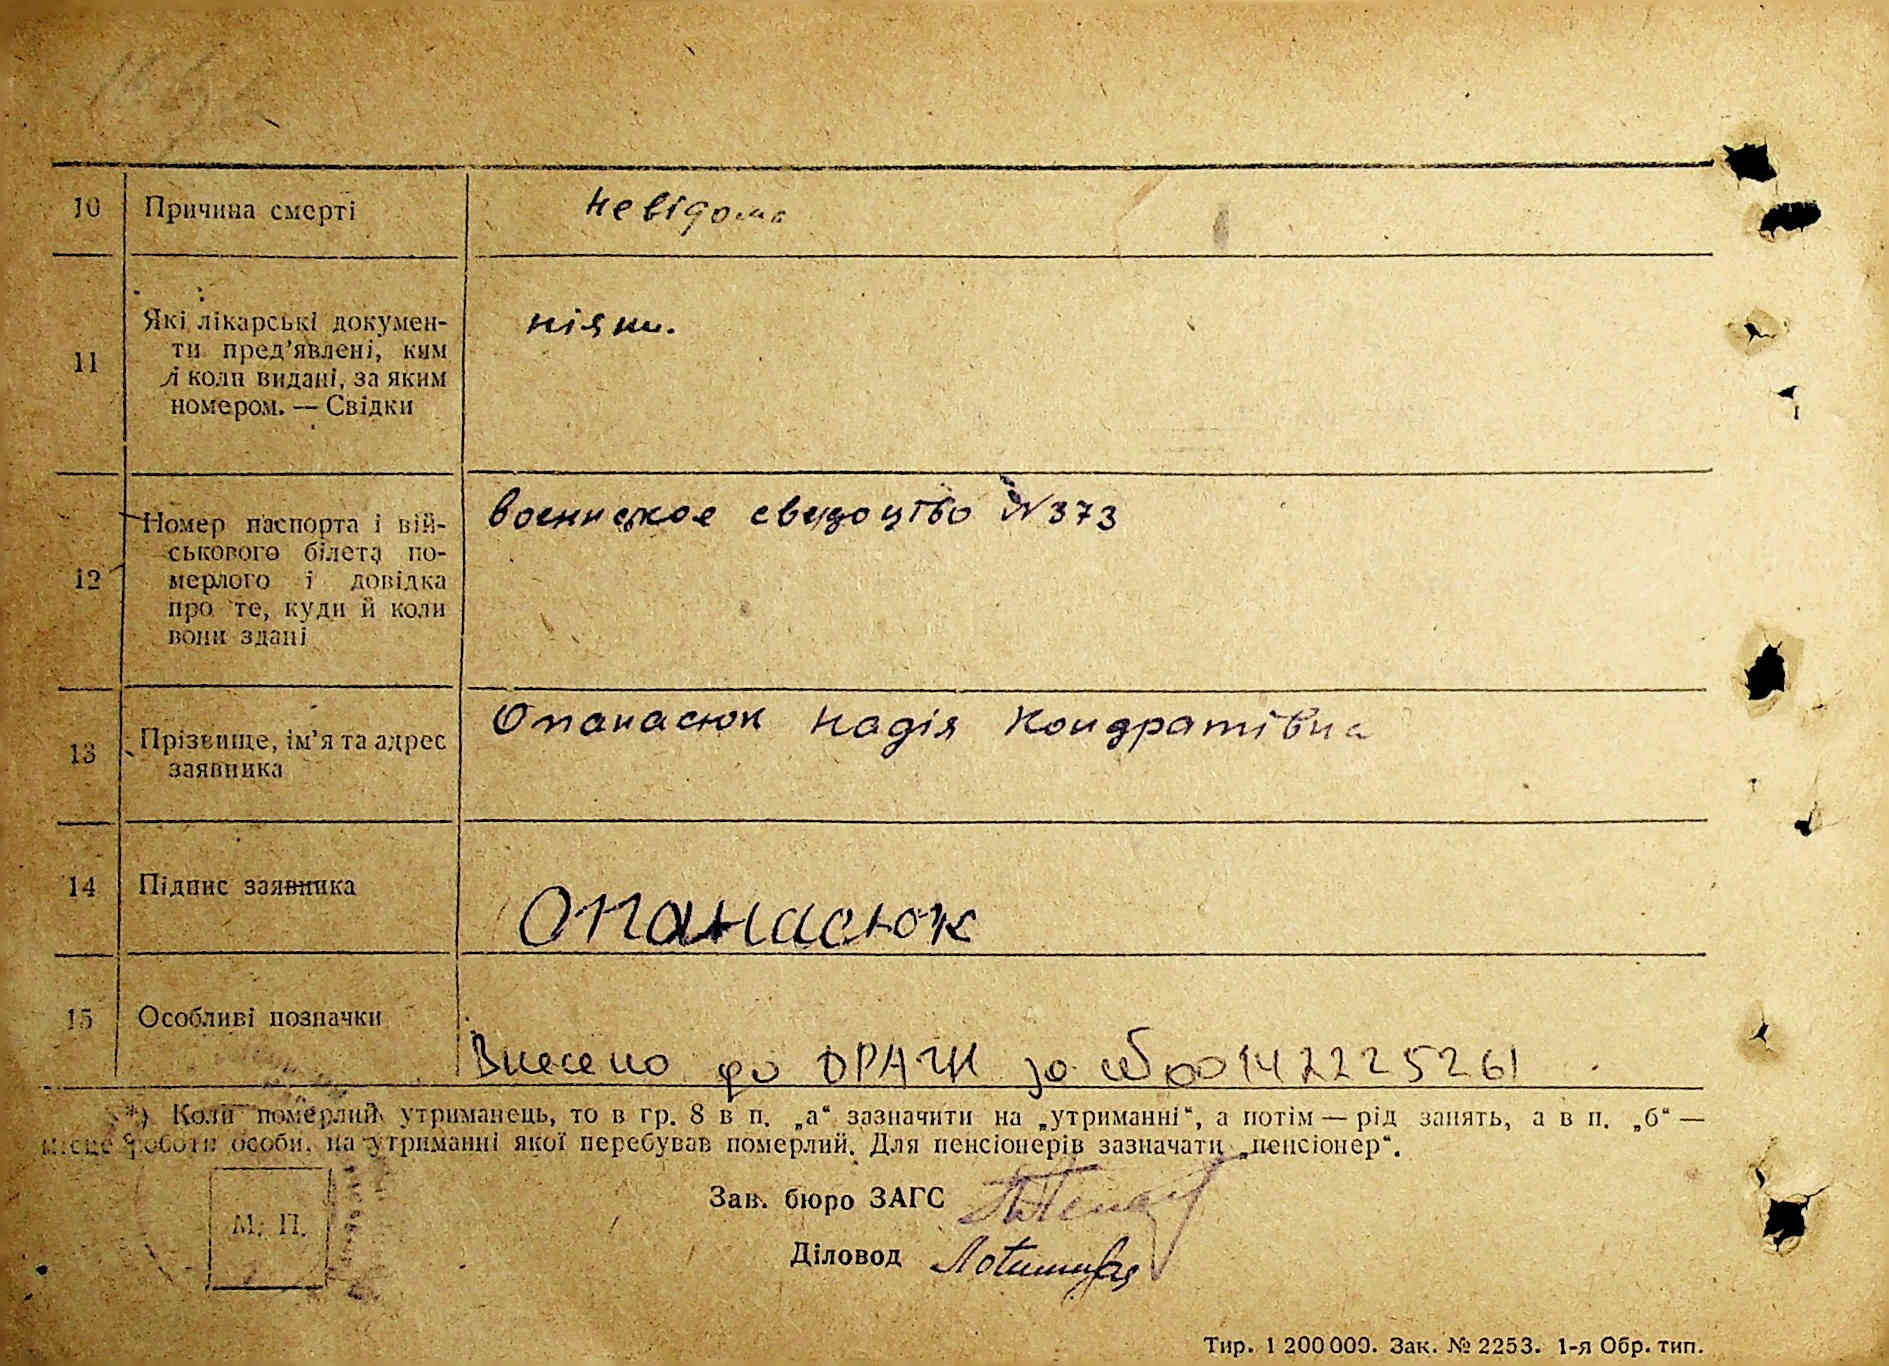 10 Причина смерті невідома
11 Які лікарські докумен-
ти пред’явлені, ким
й коли видані, за яким
номером. — Свідки
ніяки.
12 Номер паспорта і вій-
ськового білета по-
мерлого і довідка
про те, куди й коли
вони здані
военнское сведоцтво №373
13 Прізвище, ім’я та адрес
заявника
Опанасюк Надія Кондратівна
14 Підпис заявника
Опанасюк
15 Особливі позначки
Внесено до ДРАЦС за 00142225261
*) Коли померлий утриманець, то в гр. 8 в п. „а“ зазначити на „утриманні“, а потім — рід занять, а в п. „б“ —
місце роботи особи, на утриманні якої перебував померлий. Для пенсіонерів зазначати „пенсіонер“.
Зав. бюро ЗАГС
М. П.
Діловод
Тир. 1 200 000. Зак. № 2253. 1-я Обр. тип.